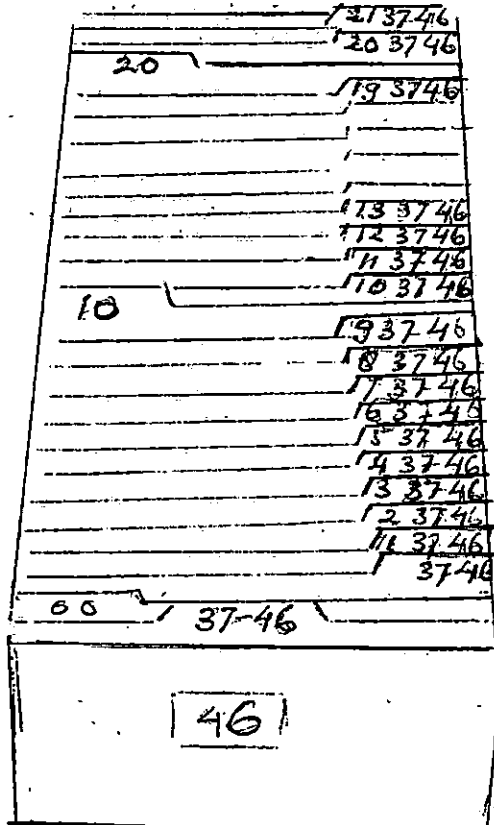 21 37-46
20 3746
20
19 3746
13 3746
12 3746
11 37-46
10 3746
10
9 37-46
8 3746
7 37-46
6 37-46
5 37 46
4 37-46
3 37-46
2 37-46
1 37-46
37-46
00
37-46
46